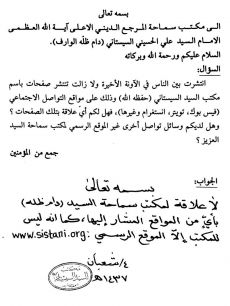 بسمه تعالى
الى مكتب سماحة المرجع الديني الاعلى آية الله العظمى
الامام السيد علي الحسيني السيستاني (دام ظلّه الوارف).
السلام عليكم ورحمة الله وبركاته
السؤال:
انتشرت بين الناس في الآونة الأخيرة ولا زالت تنتشر صفحات باسم
مكتب السيد السيستاني (حفظه الله) وذلك على مواقع التواصل الاجتماعي
(فيس بوك، تويتر، انستغرام وغيرها)، فهل لكم أيّ علاقة بتلك الصفحات ؟
وهل لديكم وسائل تواصل أخرى غير الموقع الرسمي لمكتب سماحة السيد
العزيز ؟
جمع من المؤمنين
الجواب:
بسمه تعالى
لا علاقة لمكتب سماحة السيد (دام ظله)
بأيّ من المواقع المشار إليها، كما انه ليس
للمكتب إلّا الموقع الرسمي: www.sistani.org
٤/شعبان
١٤٣٧هـ